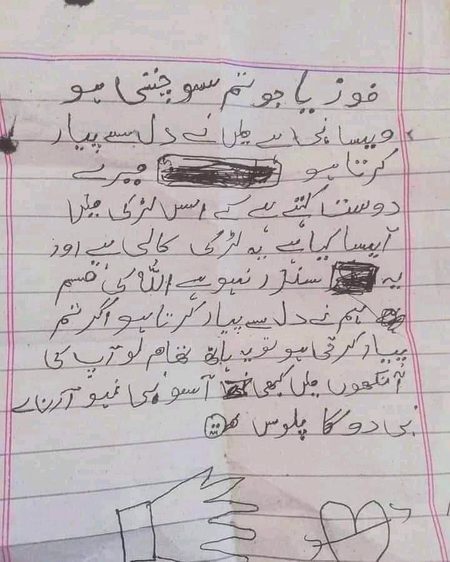 فوزیا جو تم سوچتی ہو
ویسا نی ہے میں نے دل سے پیار
کرتا ہو میرے
دوست کہتے ہے کے اس لڑکی میں
آیسا کیا ہے یہ لڑکی کالی ہے اور
یہ سندر نہیو ہے اللہ کی قسم
ہم نے دل سے پیار کرتا ہو اگر تم
پیار کرتی ہو تو یہ ہاتھ تھام لو آپ کی
آنکھوں میں کبھی آسو بھی نہیو آنے
نی دو گا پلوس